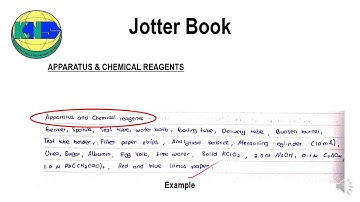 KMS
Jotter Book
APPARATUS & CHEMICAL REAGENTS
Apparatus and Chemical reagents
Beaker, Spatula, Test tube, water bath, Boiling tube, Delivery tube, Bunsen burner,
Test tube holder, Filter paper strips, Analytical balance, Measuring cylinder (10mL)
Urea, Sugar, Albumin, Egg Yolk, Lime water, Solid KClO₃, 2.0M NaOH, 0.1M CuSO₄,
1.0 M Pb(CH₃COO)₂, Red and blue litmus paper.
Example